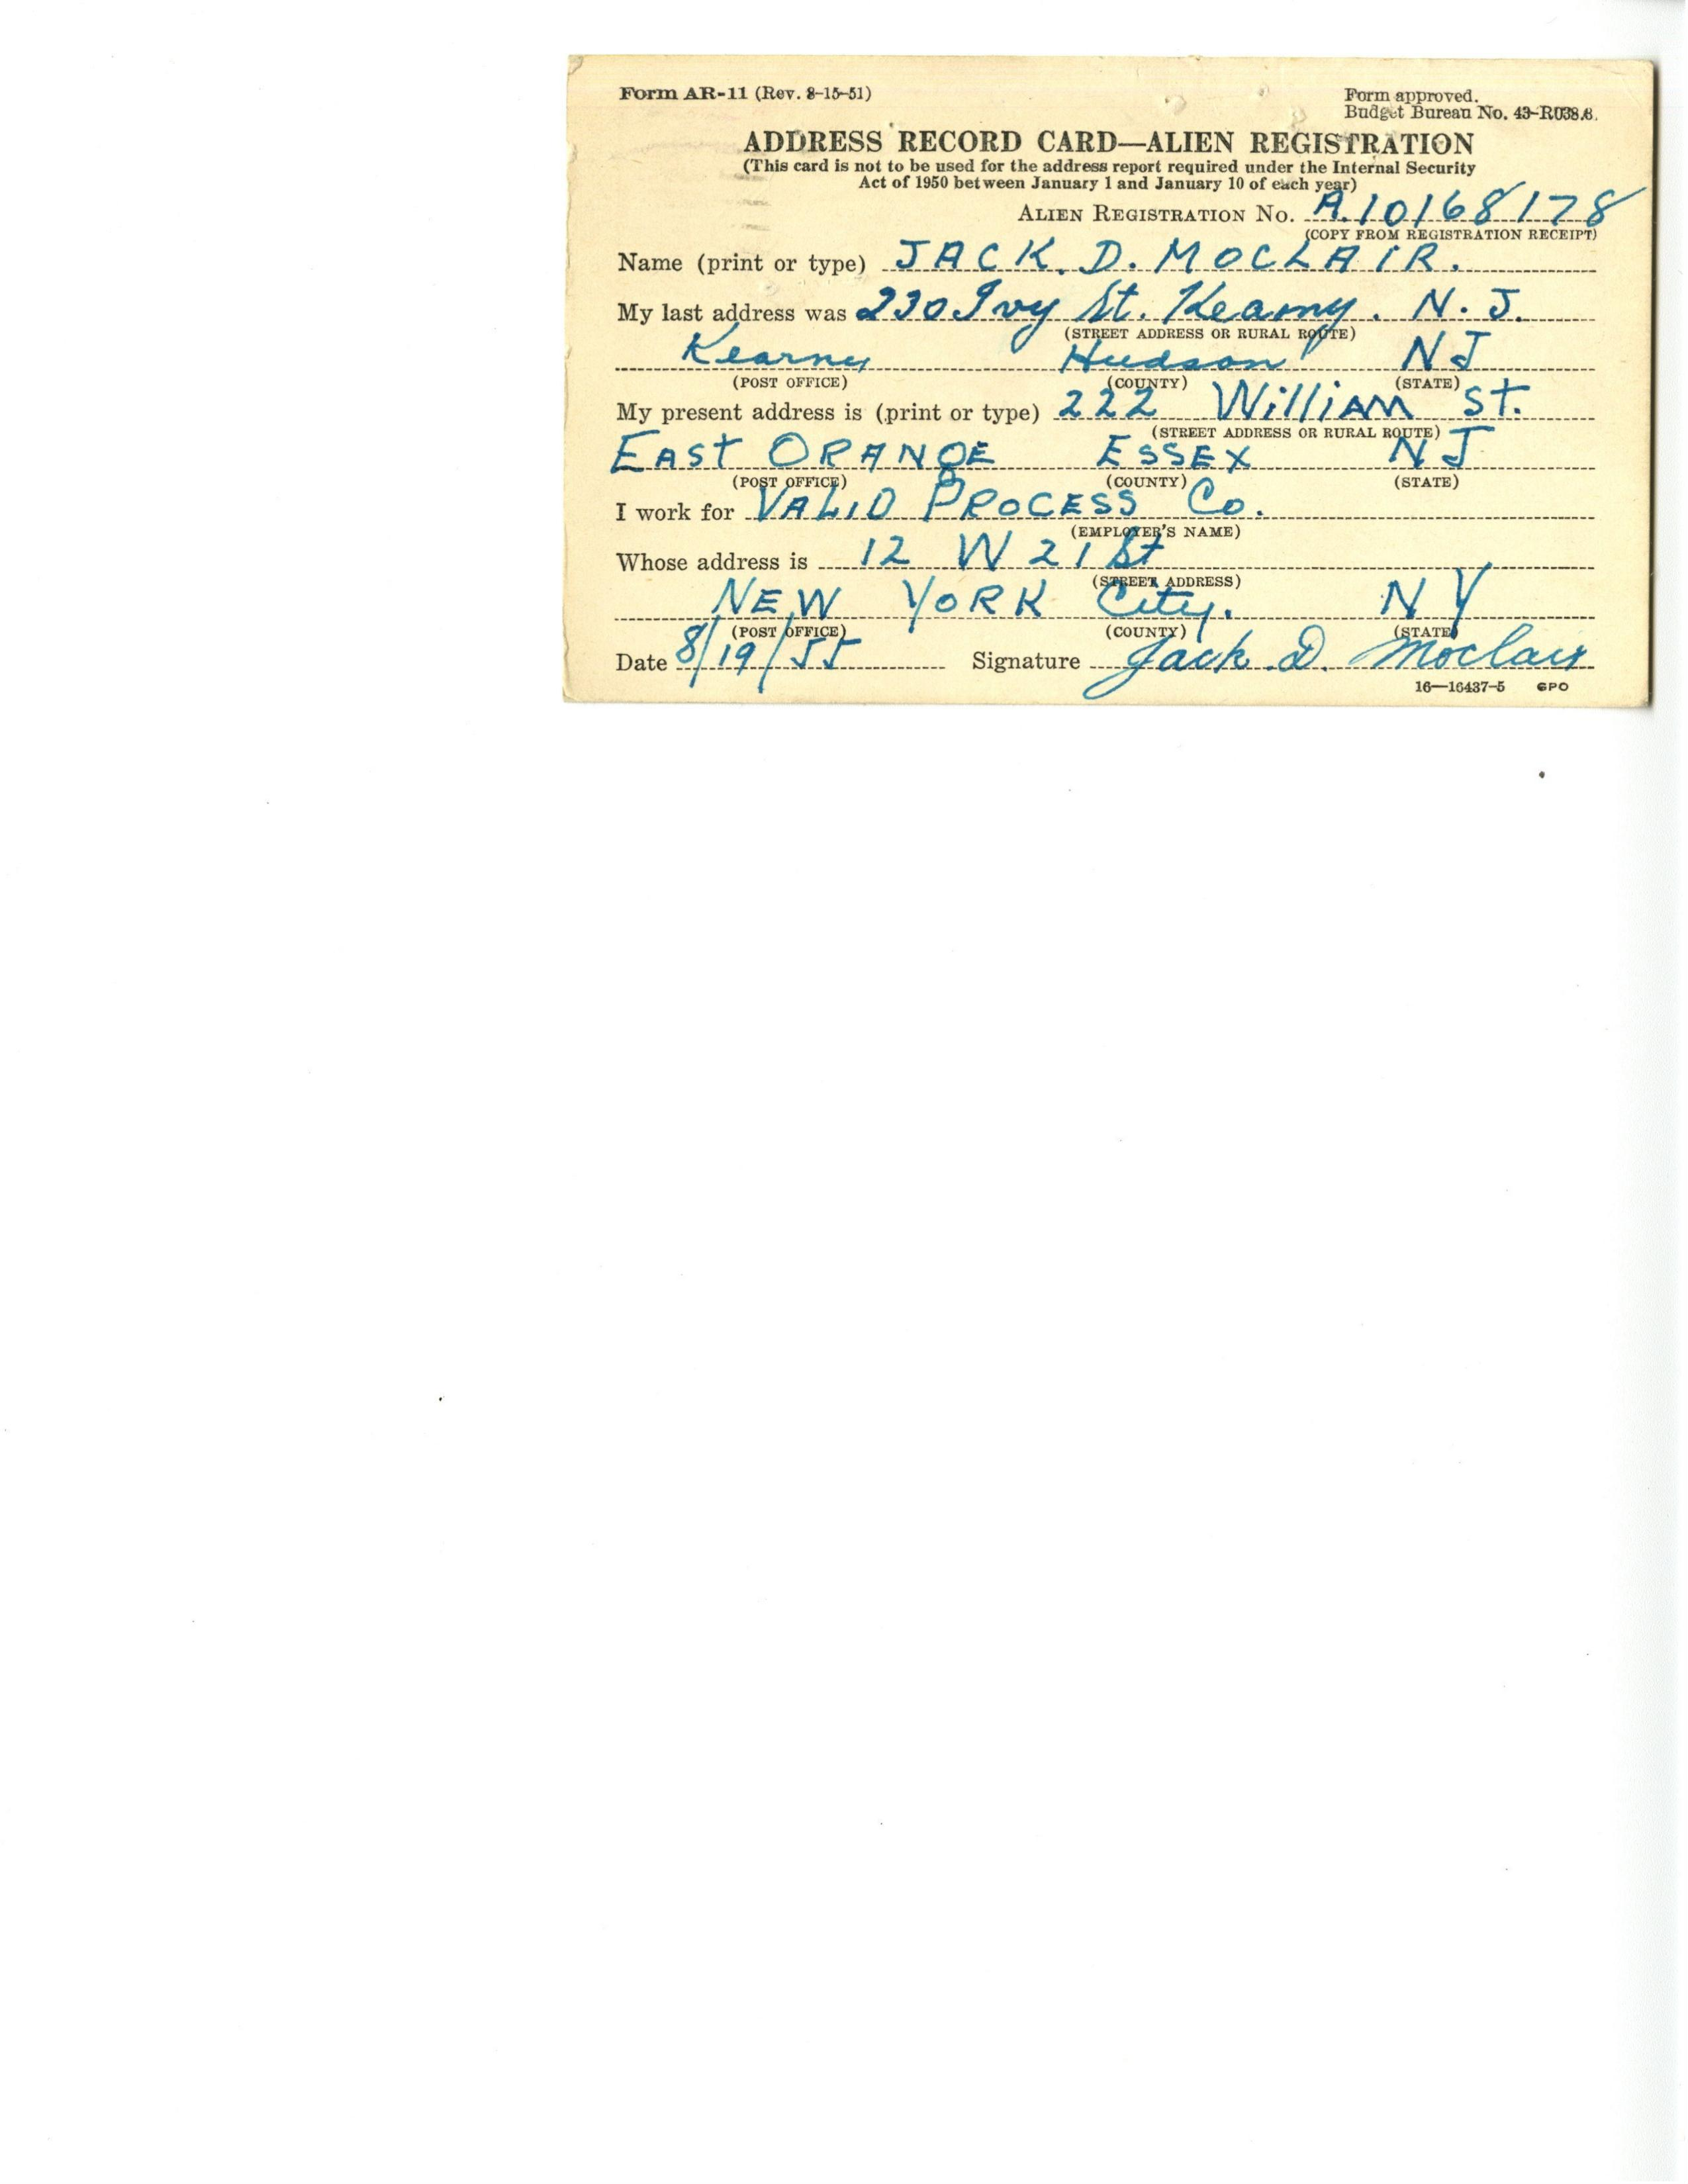 Form AR-11 (Rev. 8-15-51)
Form approved.
Budget Bureau No. 43-R038.6.
ADDRESS RECORD CARD—ALIEN REGISTRATION
(This card is not to be used for the address report required under the Internal Security
Act of 1950 between January 1 and January 10 of each year)
ALIEN REGISTRATION NO. A.10168178
(COPY FROM REGISTRATION RECEIPT)
Name (print or type) JACK. D. MOCLAIR.
My last address was 230 Ivy St. Kearny. N.J.
(STREET ADDRESS OR RURAL ROUTE)
Kearny Hudson NJ
(POST OFFICE) (COUNTY) (STATE)
My present address is (print or type) 222 William St.
(STREET ADDRESS OR RURAL ROUTE)
EAST ORANGE ESSEX NJ
(POST OFFICE) (COUNTY) (STATE)
I work for VALID PROCESS Co.
(EMPLOYER'S NAME)
Whose address is 12 W 21 St
(STREET ADDRESS)
NEW YORK City. NY
(POST OFFICE) (COUNTY) (STATE)
Date 8/19/55 Signature Jack D. Moclair
16—16437-5 GPO